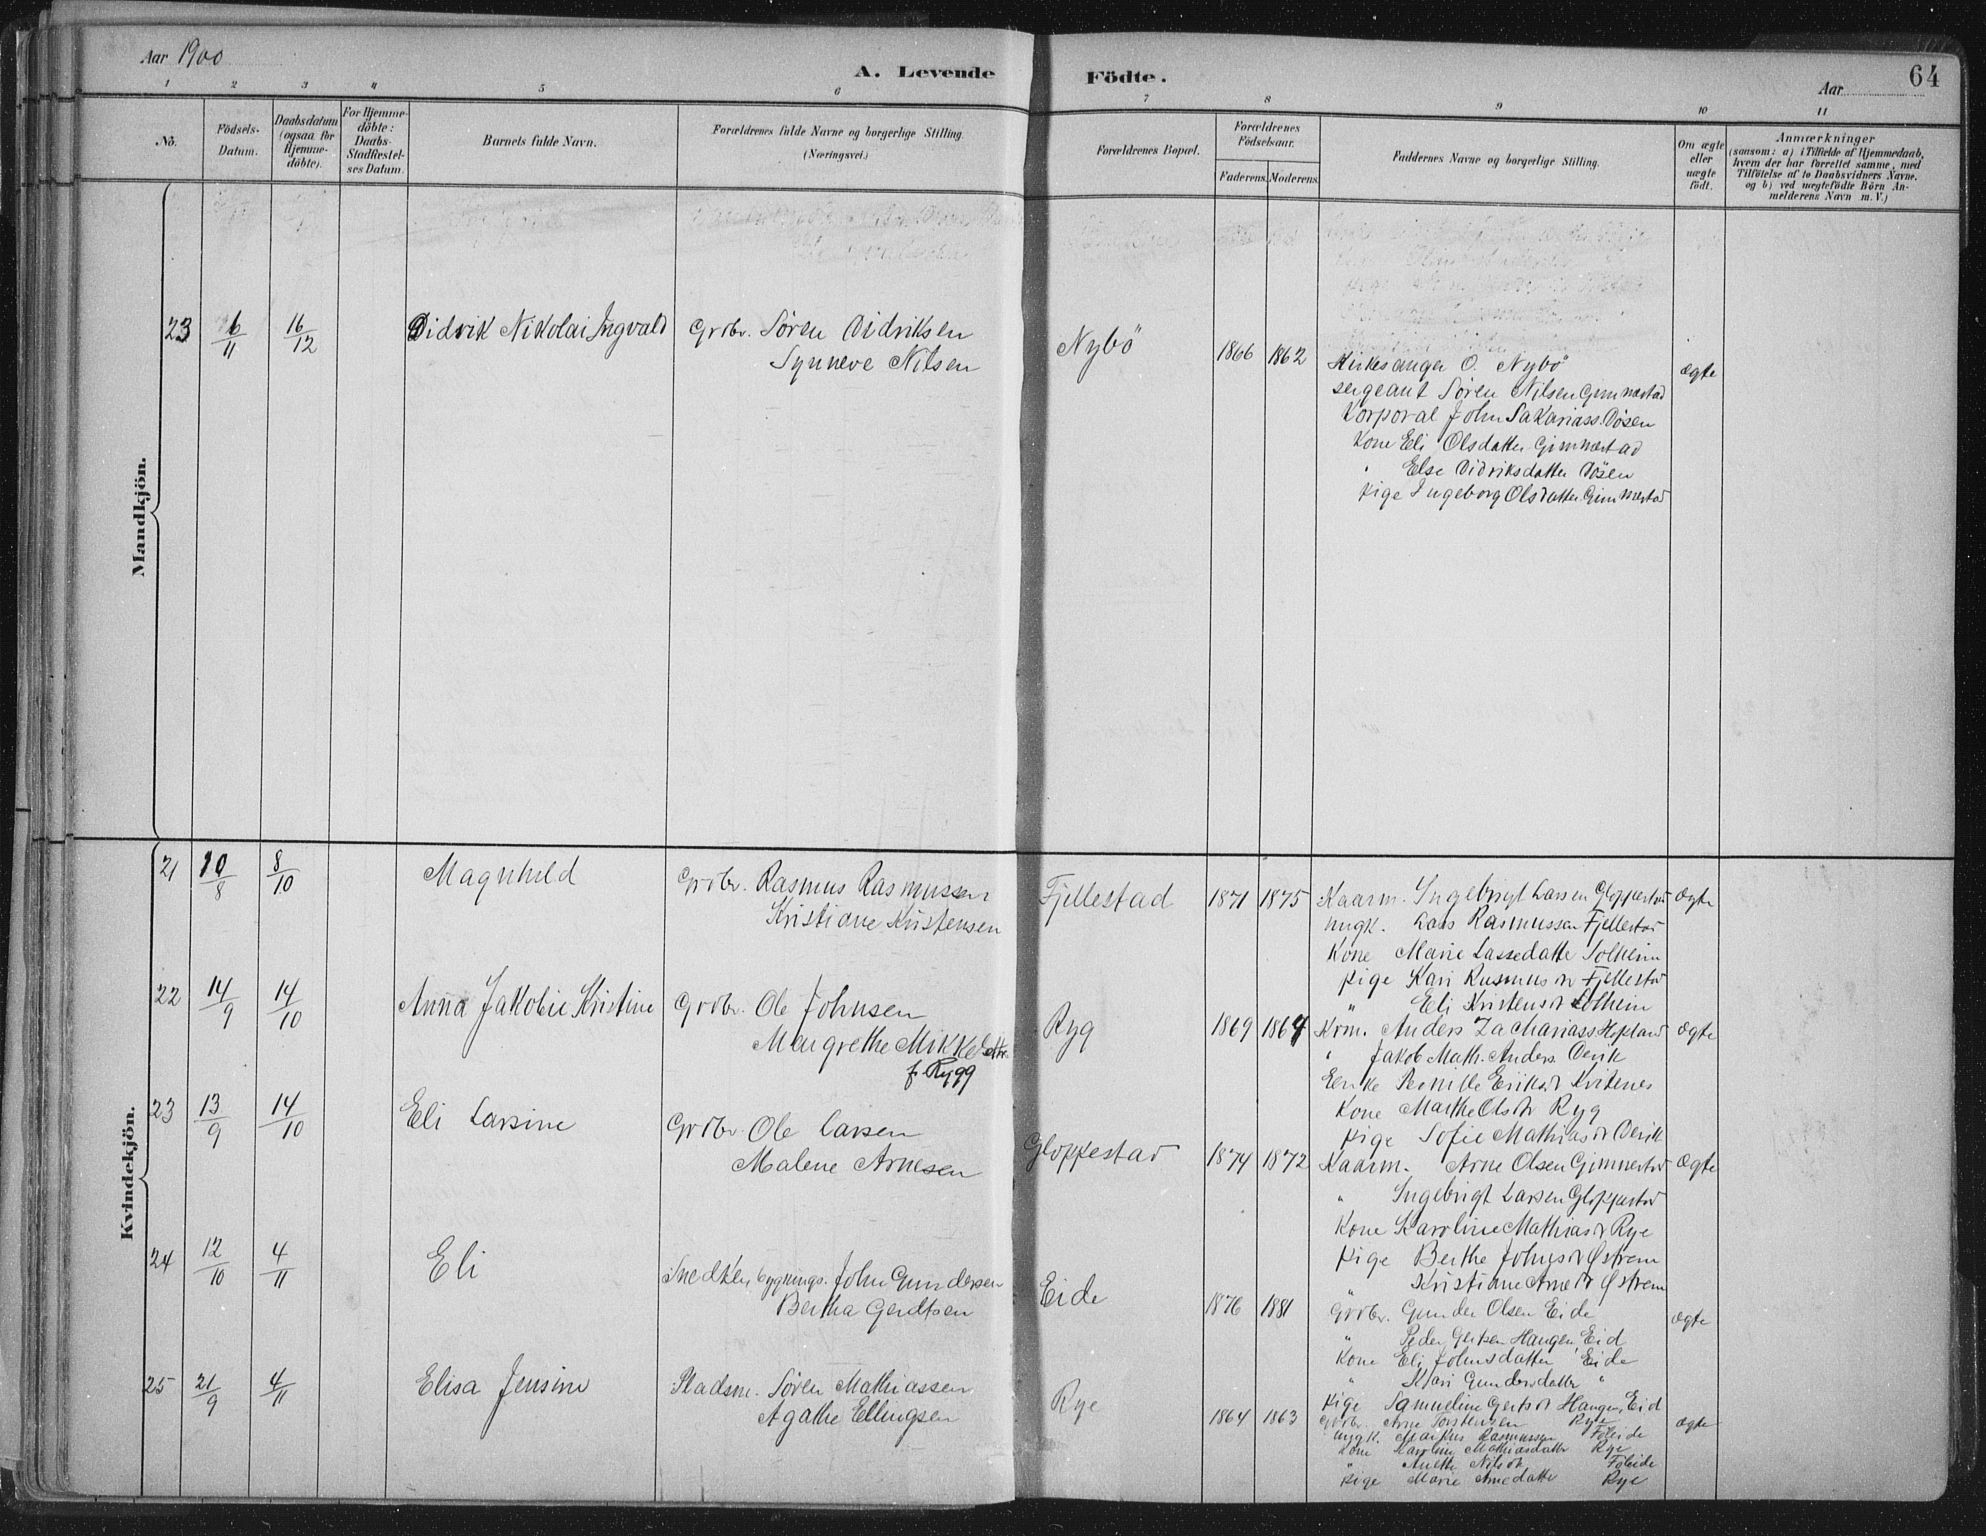 Aar 1900
A. Levende Födte.
Aar
64
1 2 3 4 5 6 7 8 9 10 11
No.
Födsels-
Datum.
Daabsdatum
(ogsaa for
Hjemme-
döbte).
For Hjemme-
döbte:
Daabs-
Stadfæstel-
ses Datum.
Barnets fulde Navn.
Forældrenes fulde Navne og borgerlige Stilling.
(Næringsvei.)
Forældrenes Bopæl.
Forældrenes
Födselsaar.
Faderens. Moderens.
Faddernes Navne og borgerlige Stilling.
Om ægte
eller
uægte
födt.
Anmærkninger
(saasom: a) i Tilfælde af Hjemmedaab,
hvem der har forrettet samme, med
Tilföielse af to Daabsvidners Navne.
og b) ved uægtefödte Börn An-
melderens Navn m. V.)
Mandkjön.
23 6/11 16/12 Didrik Nikolai Ingvald Grdbr. Sören Didriksen
Synneve Nilsen
Nybö 1866 1862
Kirkesanger O. Nybö
ægte
sergeant Sören Nilsen Gimmestad
Korporal John Sakariass. Vösen
Kone Eli Olsdatter Gimmestad
" Else Didriksdatter Vösen
pige Ingeborg Olsdatter Gimmestad
Kvindekjön.
21 10/8 8/10 Magnhild Grdbr. Rasmus Rasmussen
Kristiane Kristensen
Fjellestad 1871 1875 Kaarm. Ingebrigt Larsen Gloppestad ægte
ungk. Lars Rasmussen Fjellestad
Kone Marie Lassedatter Solheim
pige Kari Rasmusdr Fjellestad
" Eli Kristensdr Solheim
22 14/9 14/10 Anna Jakobie Kristine Grdbr. Ole Johnsen
Margrethe Mikkelsdtr.
f. Rygg
Ryg 1869 1864 Krm. Anders Zachariass Hopland ægte
" Jakob Math. Anders.
Enke Pernille Eriksdr Kvitenes
Kone Marthe Olsdr Ryg
pige Sofie Mathiasdr
23 13/9 14/10 Eli Larsine Grdbr. Ole Larsen
Malene Arnesen
Gloppestad 1874 1872 Kaarm. Arne Olsen Gimmestad ægte
" Ingebrigt Larsen Gloppestad
Kone Karoline Mathiasdr Rye
pige Berthe Johnsdr Østrem
" Kristiane Arnedr Østrem
24 12/10 4/11 Eli Snedker, bygnings. John Gundersen
Bertha Gerdtsen
Eide 1876 1881 Grdbr. Gunder Olsen Eide ægte
" Peder Gertsen Haugen, Eid
Kone Eli Johnsdatter Eide
" Kari Gundersdatter "
pige Samueline Gertsdr Haugen, Eid
25 21/9 4/11 Elisa Jensine Pladsm. Sören Mathiassen
Agathe Ellingsen
Rye 1864 1863 Grdbr. Arne Torstensen Rye ægte
ungk. Markus Rasmussen Föleide
Kone Karoline Mathiasdatter Rye
" Anette Nilsdr Föleide
pige Marie Arnedatter Rye